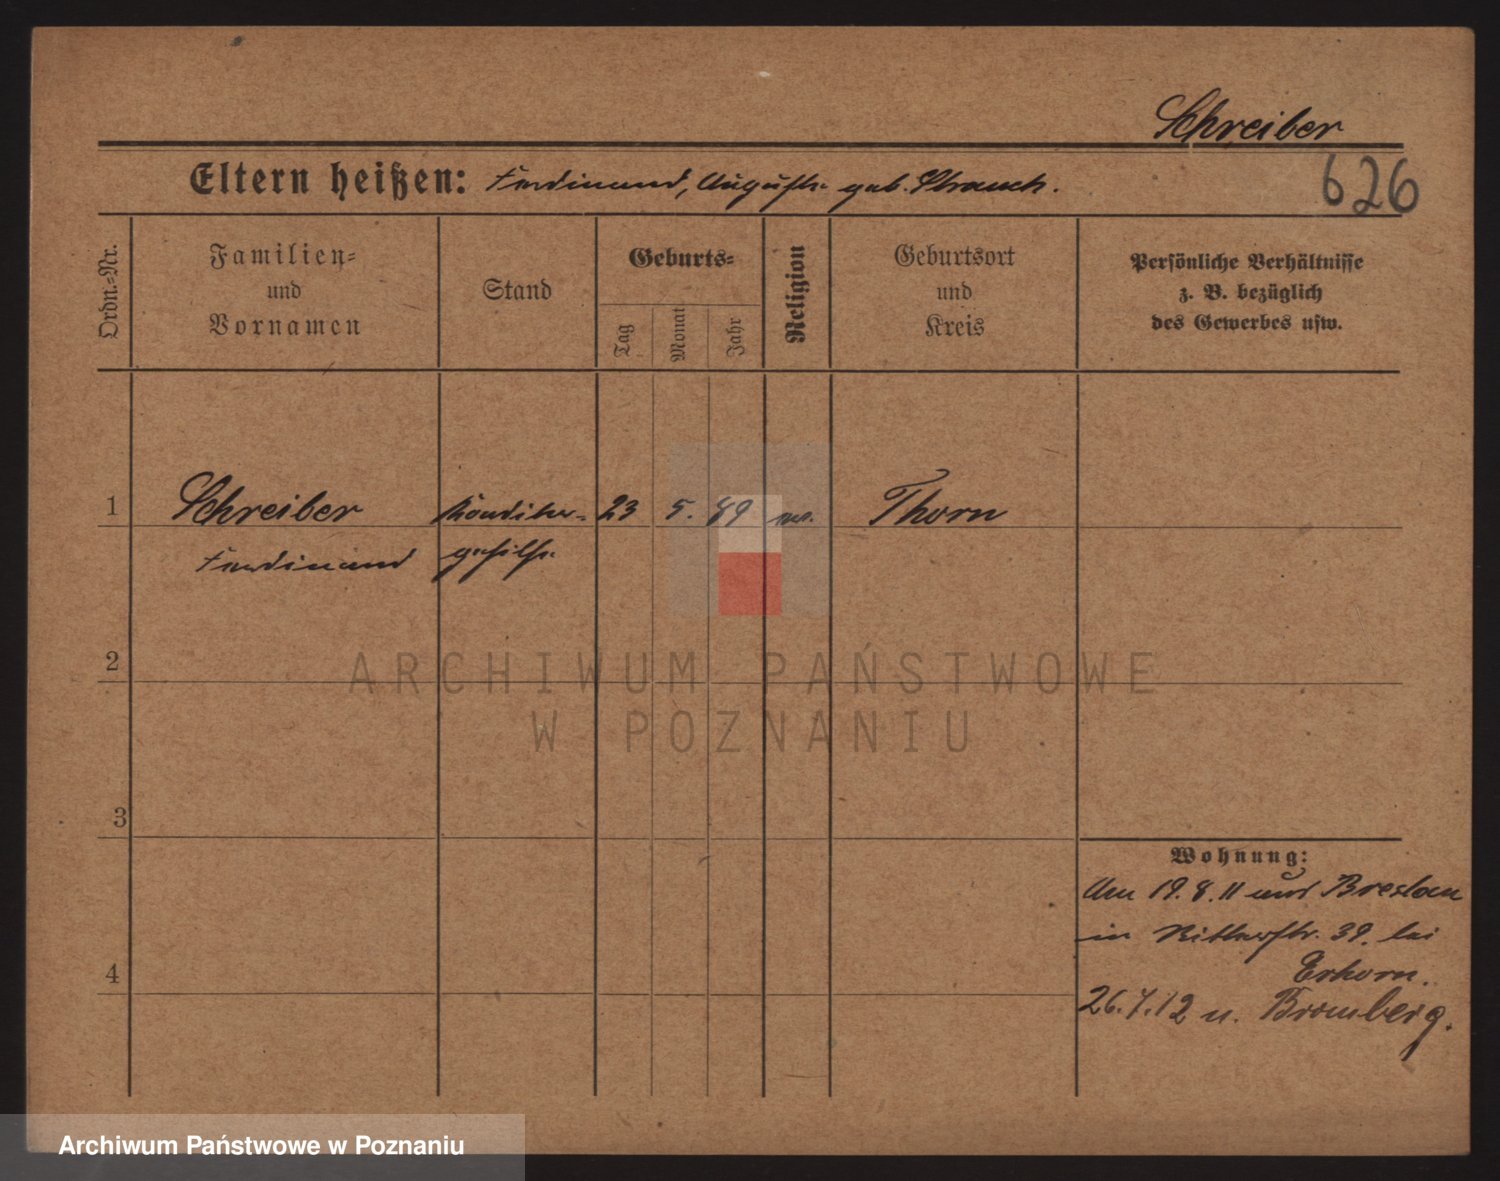 Schreiber
626
Eltern heißen: Ferdinand, Auguste geb. Strauch.
Ordn.-Nr.
Familien- und Vornamen
Stand
Geburts-
Tag
Monat
Jahr
Religion
Geburtsort und Kreis
Persönliche Verhältnisse
z. B. bezüglich
des Gewerbes usw.
1 Schreiber Konditor- 23 5. 89 Thorn
Ferdinand gehilfe
2
ARCHIWUM PAŃSTWOWE
W POZNANIU
3
Wohnung:
Am 19.8.11 aus Breslau
in Ritterstr. 39. bei
4
26.7.12 n. Bromberg.
Archiwum Państwowe w Poznaniu